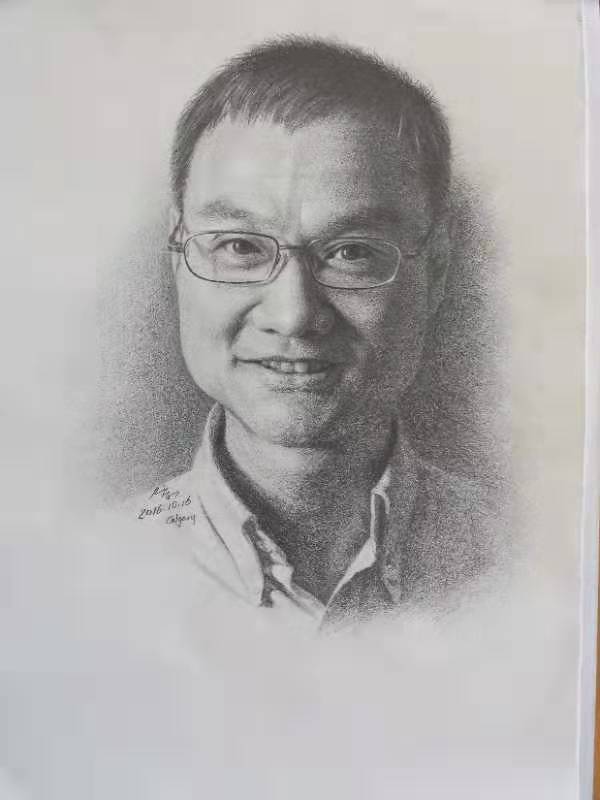 2016.10.16
Calgary